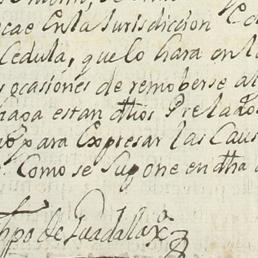 cae En la Jurisdiccion Co
Cedula, que lo hara en l
s ocasiones de remoberse al
haga estan dhos Prelados
para Expresar las Caus
Como se Supone en dha
Hppo de Guadalaxa